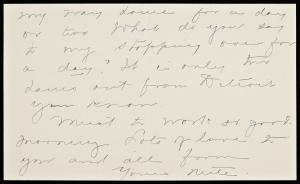 my way home for a day
or two What do you say
to my stopping over for
a day? It is only two
hours out from Detroit
you know.
Must to work so good
morning. Lots of love to
you and all from
Yours